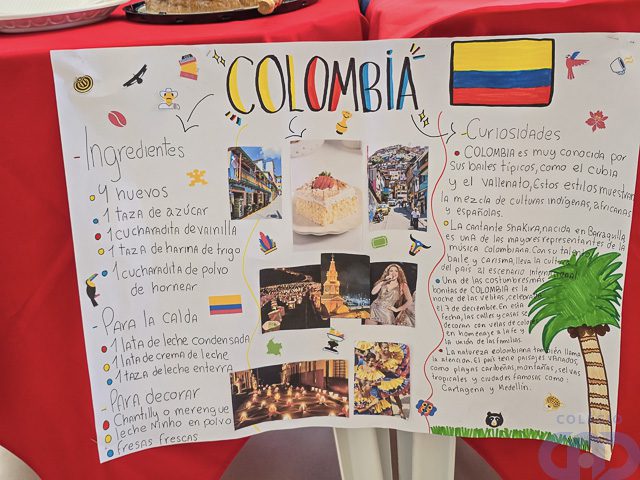 COLOMBIA
- Ingredientes
4 huevos
1 taza de azúcar
1 cucharadita de vainilla
1 taza de harina de trigo
1 cucharadita de polvo
de hornear
- Para la calda
1 lata de leche condensada
1 lata de crema de leche
1 taza de leche enterra
- Para decorar
Chantilly o merengue
leche Ninho en polvo
fresas frescas
- Curiosidades
COLOMBIA es muy conocida por
sus bailes típicos, como el cubia
y el vallenato, Estos estilos muestran
la mezcla de culturas indígenas, africanas
y españolas.
La cantante Shakira, nacida en Barraquilla,
es una de las mayores representantes de la
música colombiana. Con su talento,
baile y carisma, lleva la cultura
del país al escenario internacional
Una de las costumbres más
bonitas de COLOMBIA es la
noche de las velitas, celebrada
el 7 de decembre. En esa
fecha, las calles y casas se
decoran con velas de colo
en homenaje a la fe y
la unión de las familias.
La natureza colombiana también llama
la atención. El país tiene paisajes variados
como playas caribeñas, montañas, selvas
tropicales y ciudades famosas como:
Cartagena y Medellín.
COLÉGIO